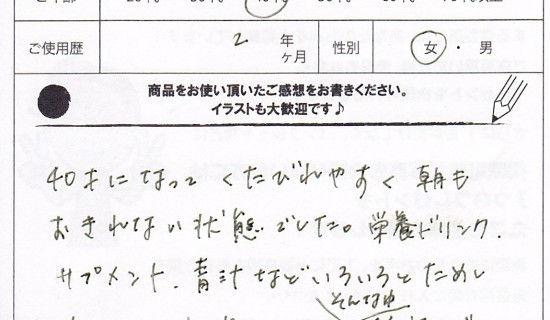 ご使用歴 2 年 ヶ月 性別 女 ・ 男
商品をお使い頂いたご感想をお書きください。
イラストも大歓迎です♪
40才になって くたびれやすく 朝も
おきれない状態でした。栄養ドリンク、
サプメント、青汁などいろいろとためし
そんな中